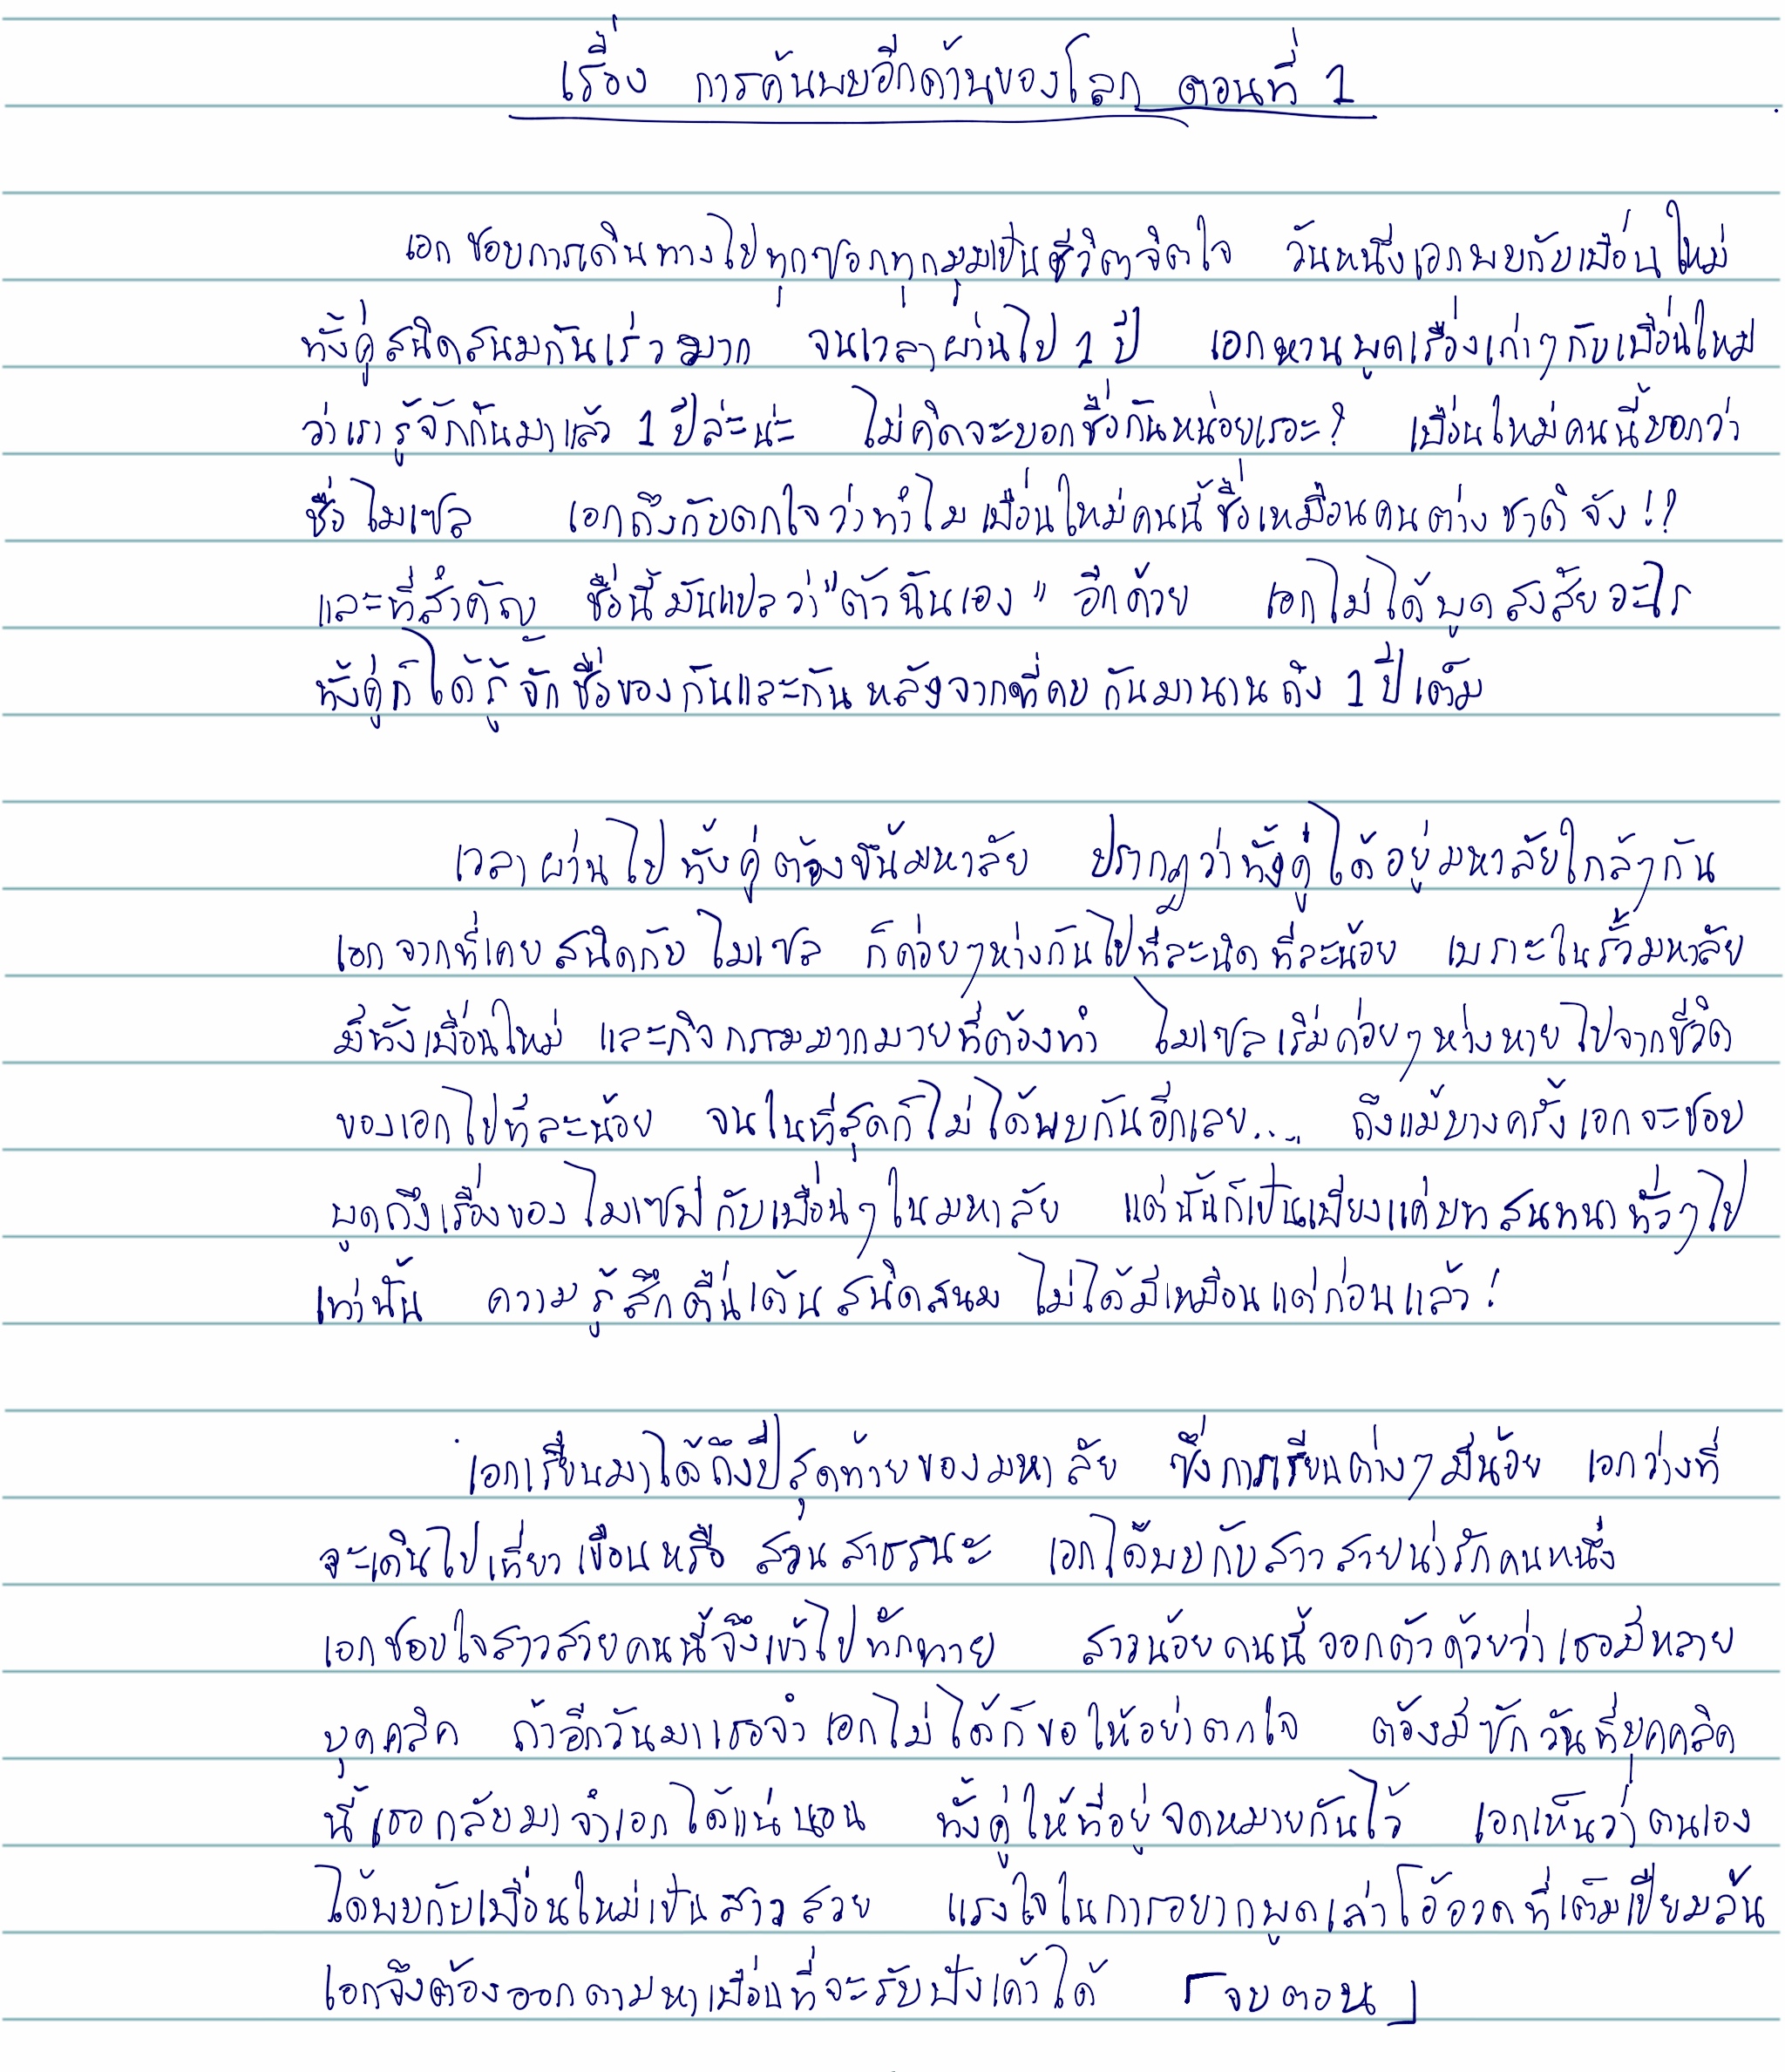 เรื่อง การค้นพบอีกด้านของโลก ตอนที่ 1
เอกชอบการเดินทางไปทุกซอกทุกมุมเป็นชีวิตจิตใจ วันหนึ่งเอกพบกับเพื่อนใหม่
ทั้งคู่สนิดสนมกันเร็วมาก จนเวลาผ่านไป 1 ปี เอกหวนพูดเรื่องเก่าๆกับเพื่อนใหม่
ว่าเรารู้จักกันมาแล้ว 1 ปีล่ะน่ะ ไม่คิดจะบอกชื่อกันหน่อยเรอะ? เพื่อนใหม่คนนี้บอกว่า
ชื่อไมเซล เอกถึงกับตกใจว่าทำไมเพื่อนใหม่คนนี้ชื่อเหมือนคนต่างชาติจัง!?
และที่สำคัญ ชื่อนี้มันแปลว่า"ตัวฉันเอง" อีกด้วย เอกไม่ได้พูดสงสัยอะไร
ทั้งคู่ก็ได้รู้จักชื่อของกันและกันหลังจากที่คบกันมานานถึง 1 ปีเต็ม
เวลาผ่านไปทั้งคู่ต้องขึ้นมหาลัย ปรากฏว่าทั้งคู่ได้อยู่มหาลัยใกล้ๆกัน
เอกจากที่เคยสนิดกับไมเซล ก็ค่อยๆห่างกันไปทีละนิดทีละน้อย เพราะในรั้วมหาลัย
มีทั้งเพื่อนใหม่ และกิจกรรมมากมายที่ต้องทำ ไมเซลเริ่มค่อยๆห่างหายไปจากชีวิต
ของเอกไปทีละน้อย จนในที่สุดก็ไม่ได้พบกันอีกเลย.... ถึงแม้บางครั้งเอกจะชอบ
พูดถึงเรื่องของไมเซลกับเพื่อนๆในมหาลัย แต่นั้นก็เป็นเพียงแค่บทสนทนาทั่วๆไป
เท่านั้น ความรู้สึกตื่นเต้นสนิดสนม ไม่ได้มีเหมือนแต่ก่อนแล้ว!
เอกเรียนมาได้ถึงปีสุดท้ายของมหาลัย ซึ่งการเรียนต่างๆมีน้อย เอกว่างที่
จะเดินไปเที่ยวเขื่อนหรือ สวนสาธรณะ เอกได้พบกับสาวสวยน่ารักคนหนึ่ง
เอกชอบใจสาวสวยคนนี้จึงเข้าไปทักทาย สาวน้อยคนนี้ออกตัวด้วยว่าเธอมีหลาย
บุคคลิค ถ้าอีกวันมาเธอจำเอกไม่ได้ก็ขอให้อย่าตกใจ ต้องมีซักวันที่บุคคลิค
นี้เธอกลับมาจำเอกได้แน่นอน ทั้งคู่ให้ที่อยู่จดหมายกันไว้ เอกเห็นว่าตนเอง
ได้พบกับเพื่อนใหม่เป็นสาวสวย แรงใจในการอยากพูดเล่าโอ้อวดที่เต็มเปี่ยมล้น
เอกจึงต้องออกตามหาเพื่อนที่จะรับฟังเค้าได้ 「จบตอน」